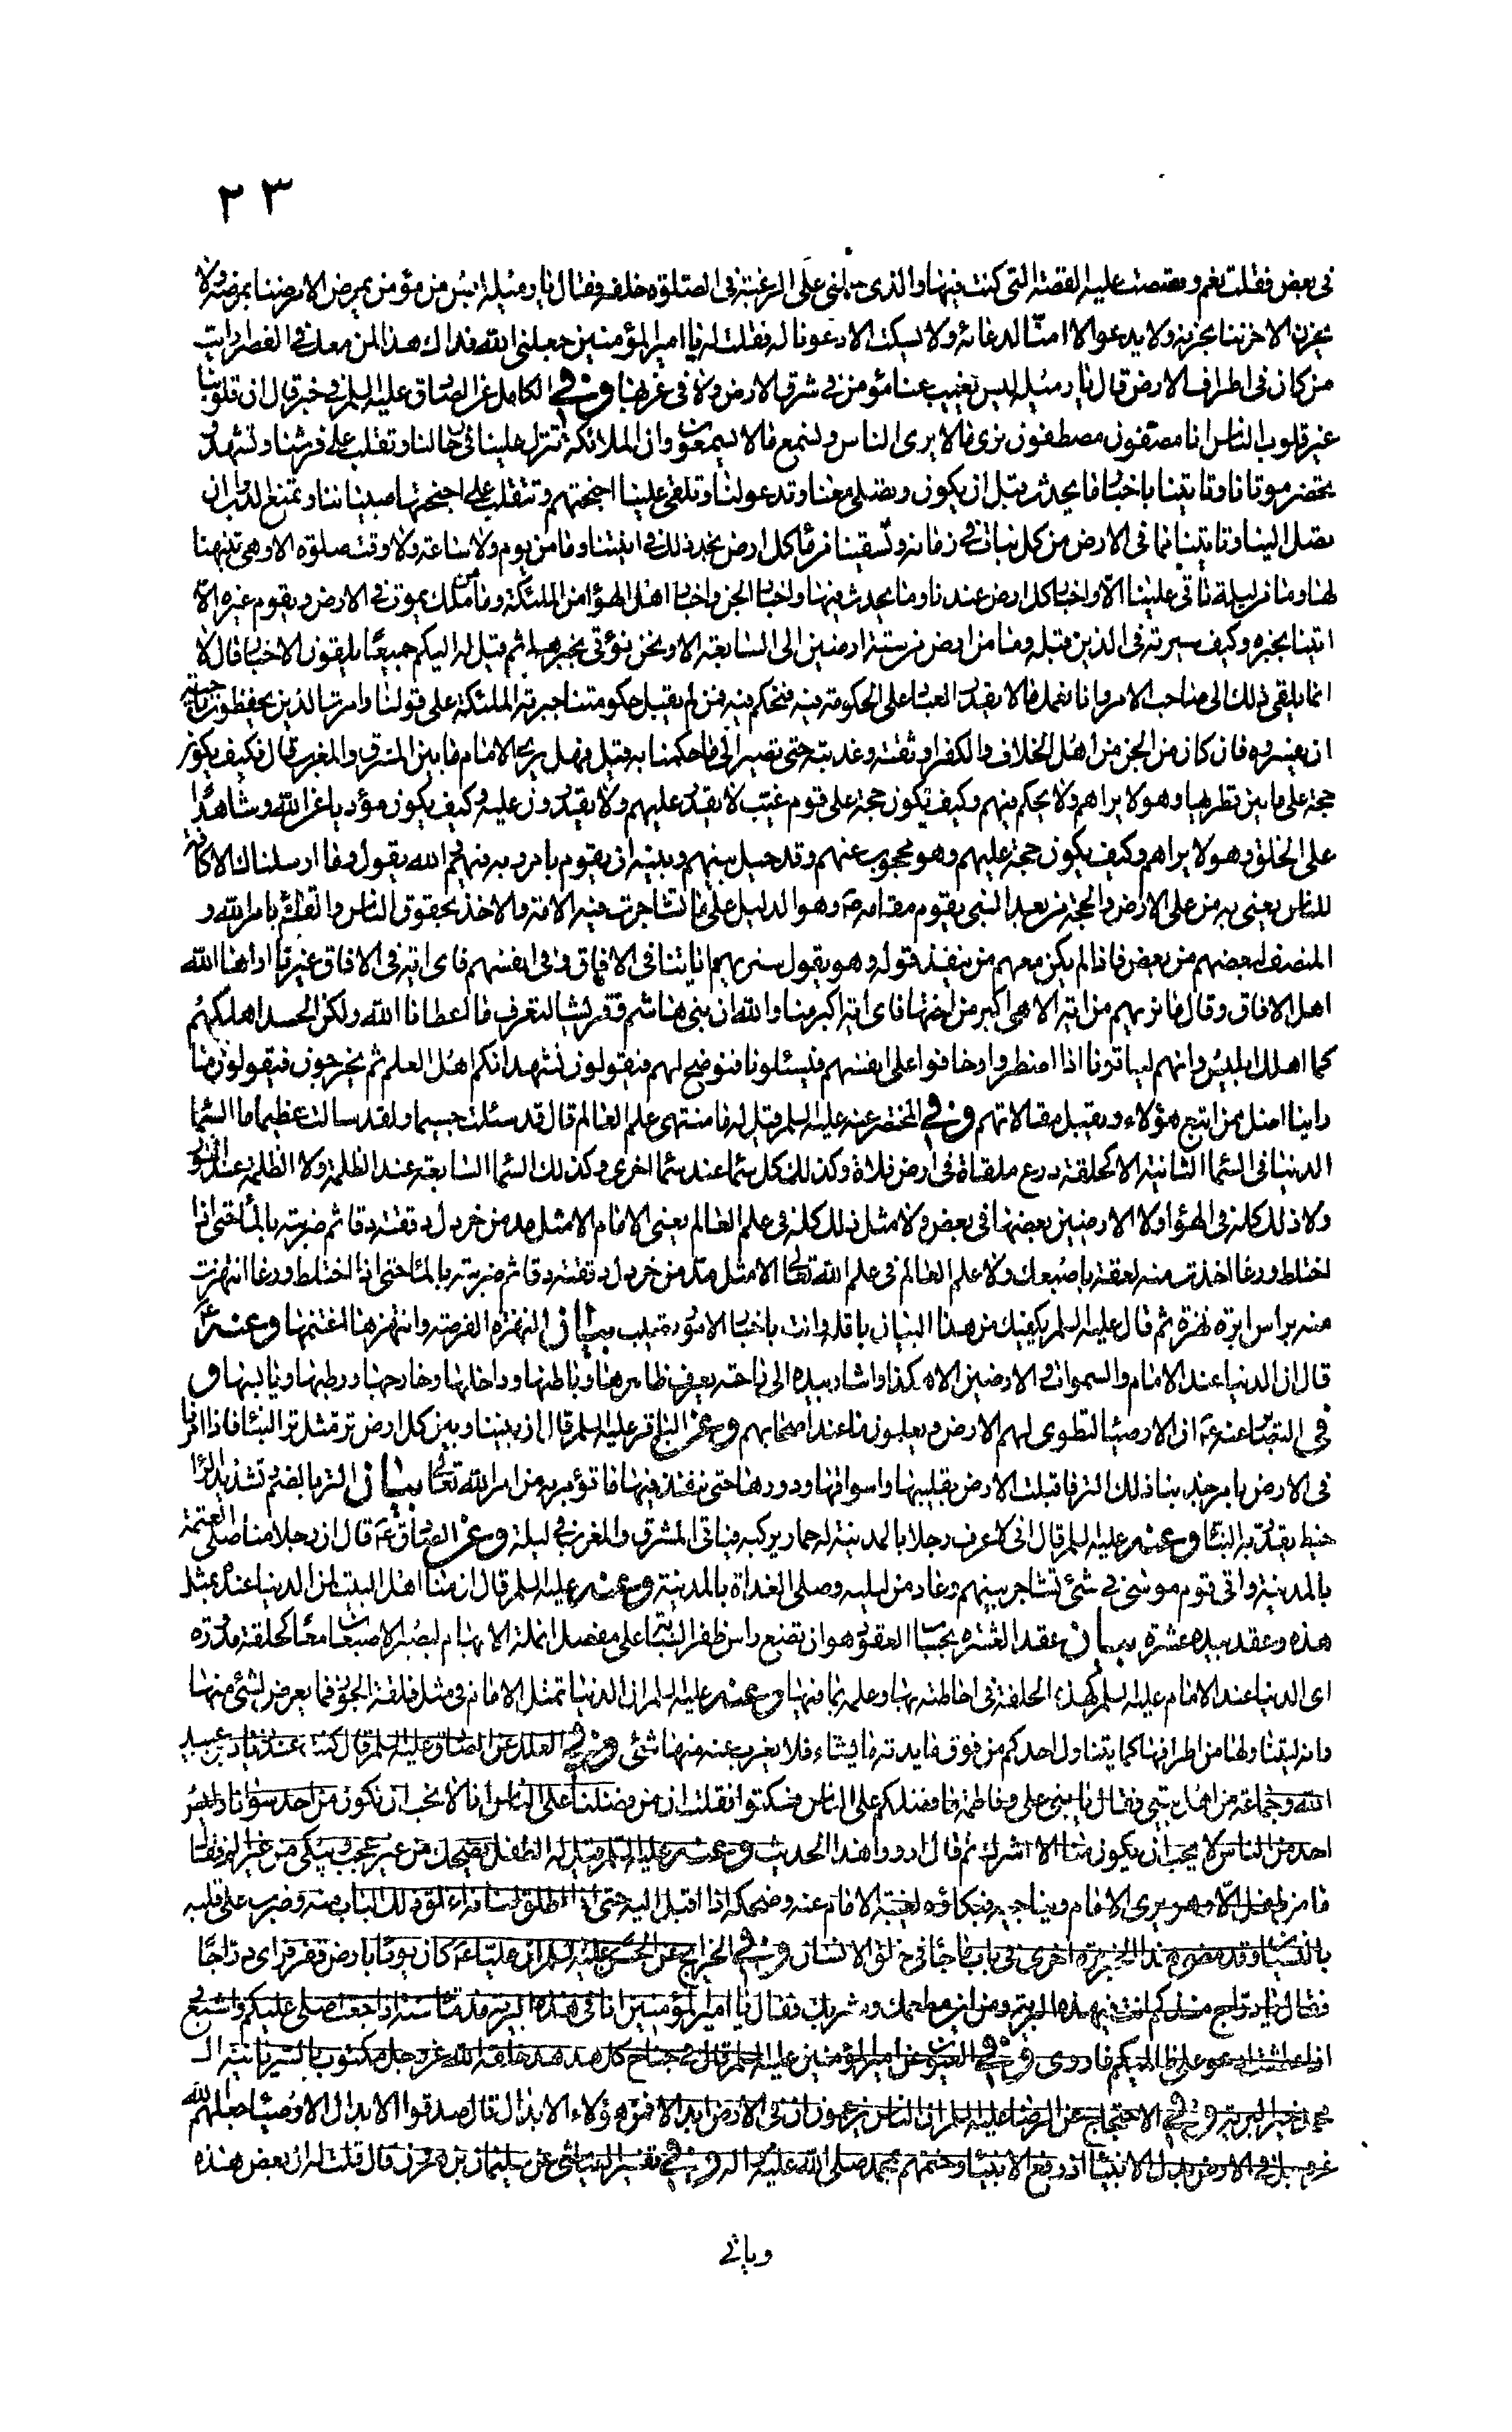 ٢٣
فى بعض فقلت نعم وقصصت عليه القصة التى كنت فيها والذى حملنى على الرغبة فى الصلوة خلفه فقال يا رميله ليس من مؤمن يمرض الا مرضنا بمرضه ولا
يحزن الا حزنا بحزنه ولا يدعو الا امنا لدعائه ولا يسكت الا دعونا له فقلت له يا امير المؤمنين جعلنى الله فداك هذا لمن معك فى القصر ارايت
من كان فى اطراف الارض قال يا رميله ليس يغيب عنا مؤمن فى شرق الارض ولا فى غربها وفى الكامل عن الصادق عليه السلم فى خبر قال ان قلوبنا
غير قلوب الناس انا مصفون مصطفون نرى ما لا يرى الناس ونسمع ما لا يسمعون وان الملائكة تتنزل علينا فى رحالنا وتقلب على فرشنا وتشهد
يحضر موتانا وتاتينا باخبار ما يحدث قبل ان يكون وتصلى معنا وتدعو لنا وتلقى علينا اجنحتهم وتتقلب على اجنحتها صبياننا وتمنع الدواب ان
تصل الينا وتاتينا مما فى الارض من كل نبات فى زمانه وتسقينا من ماء كل ارض نجد ذلك فى انيتنا وما من يوم ولا ساعة ولا وقت صلوة الا وهى تنبهنا
لها وما من ليلة تاتى علينا الا واخبار كل ارض عندنا وما يحدث فيها واخبار الجن واخبار اهل الهوا من الملئكة وما من ملك يموت فى الارض ويقوم غيره الا
اتينا بخبره وكيف سيرته فى الذين قبله وما من ارض من ستة ارضين الى السابعة الا ونحن نؤتى بخبرها ثم قيل له اليكم جميعا يلقون الاخبار قال لا
انما يلقى ذلك الى صاحب الامر وانا نحمل ما لا يقدر العباد على الحكومة فيه فنحكم فيه فمن لم يقبل حكومتنا جبرته الملئكة على قولنا وامرت الذين يحفظون ناحيته
ان يقسروه فان كان من الجن من اهل الخلاف والكفر اوثقته وعذبته حتى تصير الى ما حكمنا به قيل فهل يرى الامام ما بين المشرق والمغرب قال فكيف يكون
حجة على ما بين قطريها وهو لا يراهم ولا يحكم فيهم وكيف يكون حجة على قوم غيب لا يقدر عليهم ولا يقدرون عليه وكيف يكون مؤديا عن الله وشاهدا
على الخلق وهو لا يراهم وكيف يكون حجة عليهم وهو محجوب عنهم وقد حيل بينهم وبينه ان يقوم بامر ربه فيهم والله يقول وما ارسلناك الا كافة
للناس يعنى به من على الارض والحجة من بعد النبى يقوم مقامه ص وهو الدليل على ما تشاجرت فيه الامة والاخذ بحقوق الناس والقائم بامر الله و
المنصف لبعضهم من بعض فاذا لم يكن معهم من ينفذ قوله وهو يقول سنريهم اياتنا فى الافاق وفى انفسهم فاى اية فى الافاق غيرنا اراها الله
اهل الافاق وقال ما نريهم من اية الا هى اكبر من اختها فاى اية اكبر منا والله ان بنى هاشم وقريشا لتعرف ما اعطانا الله ولكن الحسد اهلكهم
كما اهلك ابليس وانهم لياتوننا اذا اضطروا وخافوا على انفسهم فيسئلونا فنوضح لهم فيقولون نشهد انكم اهل العلم ثم يخرجون فيقولون ما
راينا اضل ممن اتبع هؤلاء ويقبل مقالاتهم وفى المختصر عنه عليه السلم قيل له ما منتهى علم العالم قال قد سئلت جسيما ولقد سالت عظيما ما السماء
الدنيا فى السماء الثانية الا كحلقة درع ملقاة فى ارض فلاة وكذلك كل سماء عند سماء اخرى وكذلك السماء السابعة عند الظلمة ولا الظلمة عند النور
ولا ذلك كله فى الهوا ولا الارضين بعضها فى بعض ولا مثل ذلك كله فى علم العالم يعنى الامام الا مثل مد من خردل دققته دقا ثم ضربته بالماء حتى اذا
اختلط ورغا اخذت منه لعقة باصبعك ولا علم العالم فى علم الله تعالى الا مثل مد من خردل دققته دقا ثم ضربته بالماء حتى اذا اختلط ورغا انتهزت
منه براس ابرة نهزة ثم قال عليه السلم يكفيك من هذا البيان باقله وانت باخبار الامور تصيب بيان النهزة الفرصة وانتهزها اغتنمها وعنه ع
قال ان الدنيا عند الامام والسموات والارضين الا هكذا واشار بيده الى راحته يعرف ظاهرها وباطنها وداخلها وخارجها ورطبها ويابسها و
فى البصائر عنه ع ان الاوصياء لتطوى لهم الارض ويعلمون ما عند اصحابهم وعن الباقر عليه السلم قال ان بيننا وبين كل ارض تر مثل تر البناء فاذا امرنا
فى الارض بامر جذبنا ذلك التر فاقبلت الارض بقليبها واسواقها ودورها حتى ننفذ فيها ما نؤمر به من امر الله تعالى بيان التر بالضم تشديد الراء
خيط يقدر به البناء وعنه عليه السلم قال انى لاعرف رجلا بالمدينة له حمار يركبه فياتى المشرق والمغرب فى ليلة وعن الصادق ع قال ان رجلا منا صلى العتمة
بالمدينة واتى قوم موسى فى شئ تشاجر بينهم وعاد من ليلته وصلى الغداة بالمدينة وعنه عليه السلم قال ان منا اهل البيت لمن الدنيا عنده بمثل
هذه وعقد بيده عشرة بيان عقد العشرة بحساب العقود هو ان تضع راس ظفر السبابة على مفصل انملة الابهام ليصير الاصبعان معا كحلقة مدورة
اى الدنيا عند الامام عليه السلم كهذه الحلقة فى احاطته بها وعلمه بما فيها وعنه عليه السلم ان الدنيا تمثل للامام فى مثل فلقة الجوز فما يعرض لشئ منها
وانه ليتناولها من اطرافها كما يتناول احدكم من فوق مايدته ما يشاء فلا يعزب عنه منها شئ وفى العلل عن الصادق عليه السلم قال كنت عند زياد بن عبيد
الله وجماعة من اهل بيتى فقال يا بنى على وفاطمة ما فضلكم على الناس فسكتوا فقلت ان من فضلنا على الناس انا لا نحب ان نكون من احد سوانا وليس
احد من الناس لا يحب ان يكون منا الا اشرك ثم قال ارووا هذا الحديث وعنه عليه السلم قيل له الطفل يضحك من غير عجب ويبكى من غير الم فقال
ما من طفل الا وهو يرى الامام ويناجيه فبكاؤه لغيبة الامام عنه وضحكه اذا اقبل اليه حتى اذا اطلق لسانه اغلق ذلك الباب عنه وضرب على قلبه
بالنسيان وقد مضى هذا الخبر مرة اخرى فى باب ما جاء فى خلق الانسان وفى الخرايج عن الحسن عليه السلم ان عليا ع كان يوما بارض قفر فراى دراجا
فقال يا دراج منذ كم انت فى هذه البرية ومن اين مطعمك ومشربك فقال يا امير المؤمنين انا فى هذه البرية منذ مائة سنة اذا جعت اصلى عليكم فاشبع
اذا عطشت ادعو على ظالميكم فاروى وفى العيون عن امير المؤمنين عليه السلم قال فى جناح كل هدهد خلقه الله عز وجل مكتوب بالسريانية ال
محمد خير البرية وفى الاحتجاج عن الرضا عليه السلم ان الناس يزعمون ان فى الارض ابدالا فمن هؤلاء الابدال قال صدقوا الابدال الاوصياء جعلهم الله
عز وجل فى الارض بدل الانبياء اذ رفع الانبياء وختمهم بمحمد صلى الله عليه واله وفى تفسير العياشى عن سليمان بن قال قلت له ان بعض هذه
وياتى